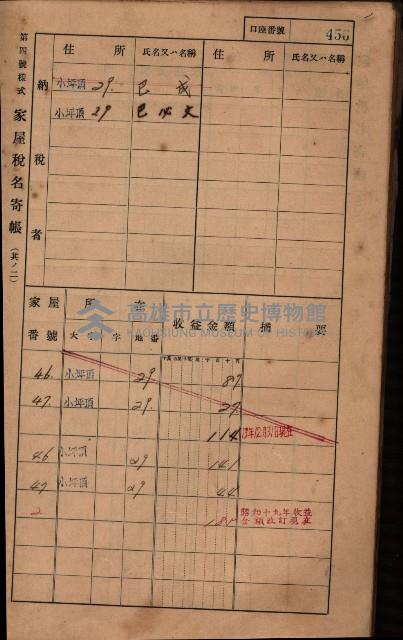 第四號樣式 家屋稅名寄帳 (其ノ二)
口座番號 456
納稅者
住所 氏名又ハ名稱 住所 氏名又ハ名稱
小坪頂 29. 己 成
小坪頂 29
家屋番號 所在 大字 字 地番 收益金額 摘要
高雄市立歷史博物館
KAOHSIUNG MUSEUM OF HISTORY
46. 小坪頂 29 87
47. 小坪頂 29. 27
114
46 小坪頂 29 141
47 小坪頂 29 44
2 昭和十九年收益
金額改訂現在